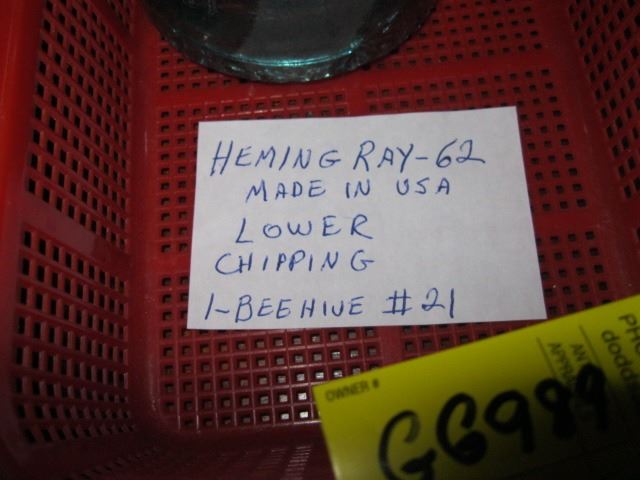 HEMINGRAY-62
MADE IN USA
LOWER
CHIPPING
1-BEEHIVE #21
OWNER #
GG989